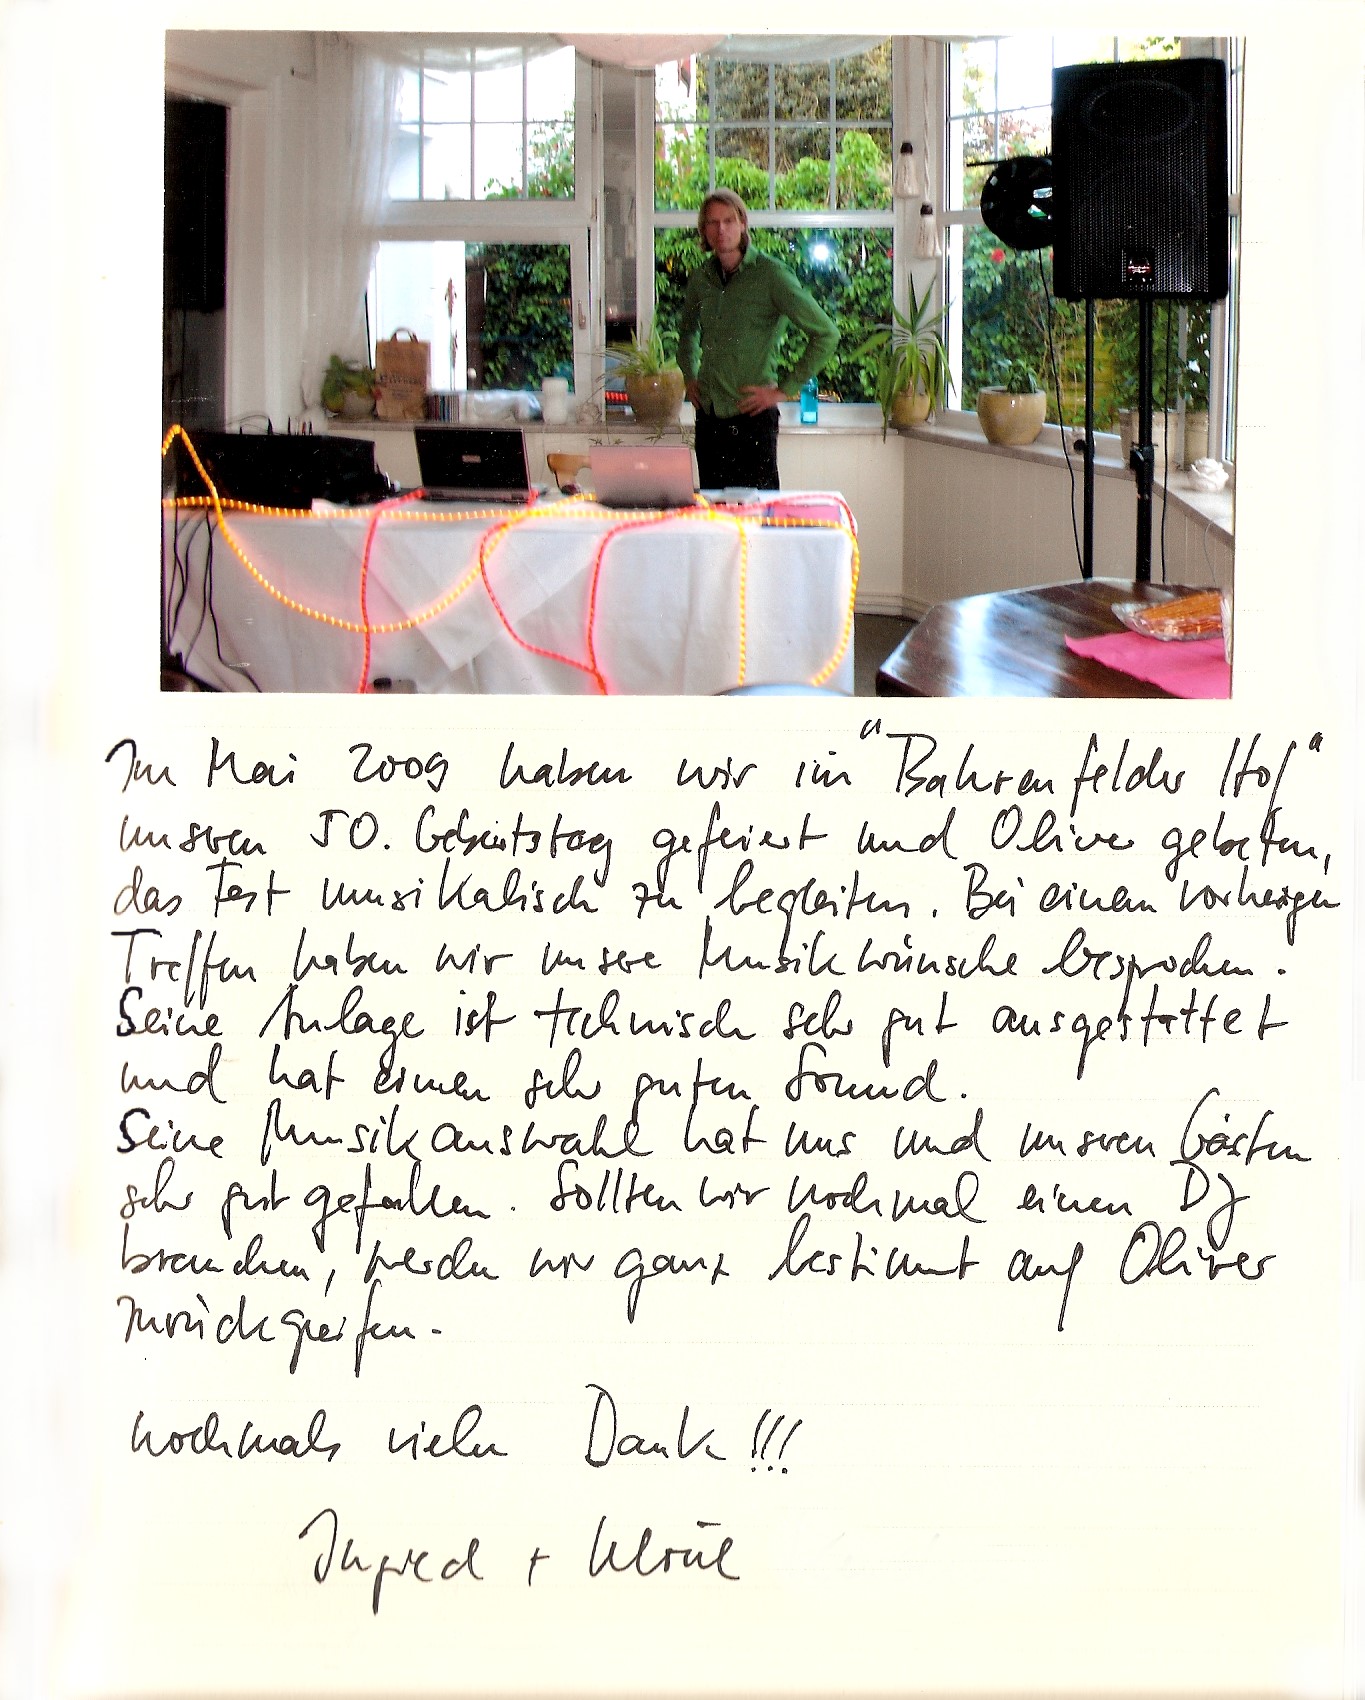 Im Mai 2009 haben wir im "Bahrenfelder Hof"
unseren 50. Geburtstag gefeiert und Oliver gebeten,
das Fest musikalisch zu begleiten. Bei einem vorherigen
Treffen haben wir unsere Musikwünsche besprochen.
Seine Anlage ist technisch sehr gut ausgestattet
und hat einen sehr guten Sound.
Seine Musikauswahl hat uns und unseren Gästen
sehr gut gefallen. Sollten wir nochmal einen DJ
brauchen, werden wir ganz bestimmt auf Oliver
zurückgreifen.
Nochmals vielen Dank!!!
Ingrid +